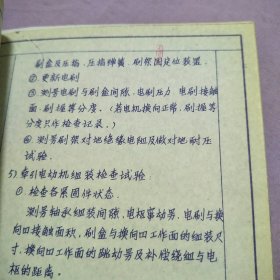 刷盒及压指、压指弹簧、刷架固定位装置。
②更新电刷
③测量电刷与刷盒间隙、电刷压力、电刷接触
面、刷握等分度。(若电机换向正常,刷握等
分度只作检查记录。)
④测量刷架对地绝缘电阻及做对地耐压
试验。
5)牵引电动机组装检查试验:
①检查各紧固件状态。
测量轴承组装间隙、电枢窜动量、电刷与换
向器接触面积,刷盒与换向器工作面的组装尺
寸、换向器工作面的跳动量及补偿绕组与电
枢的距离。